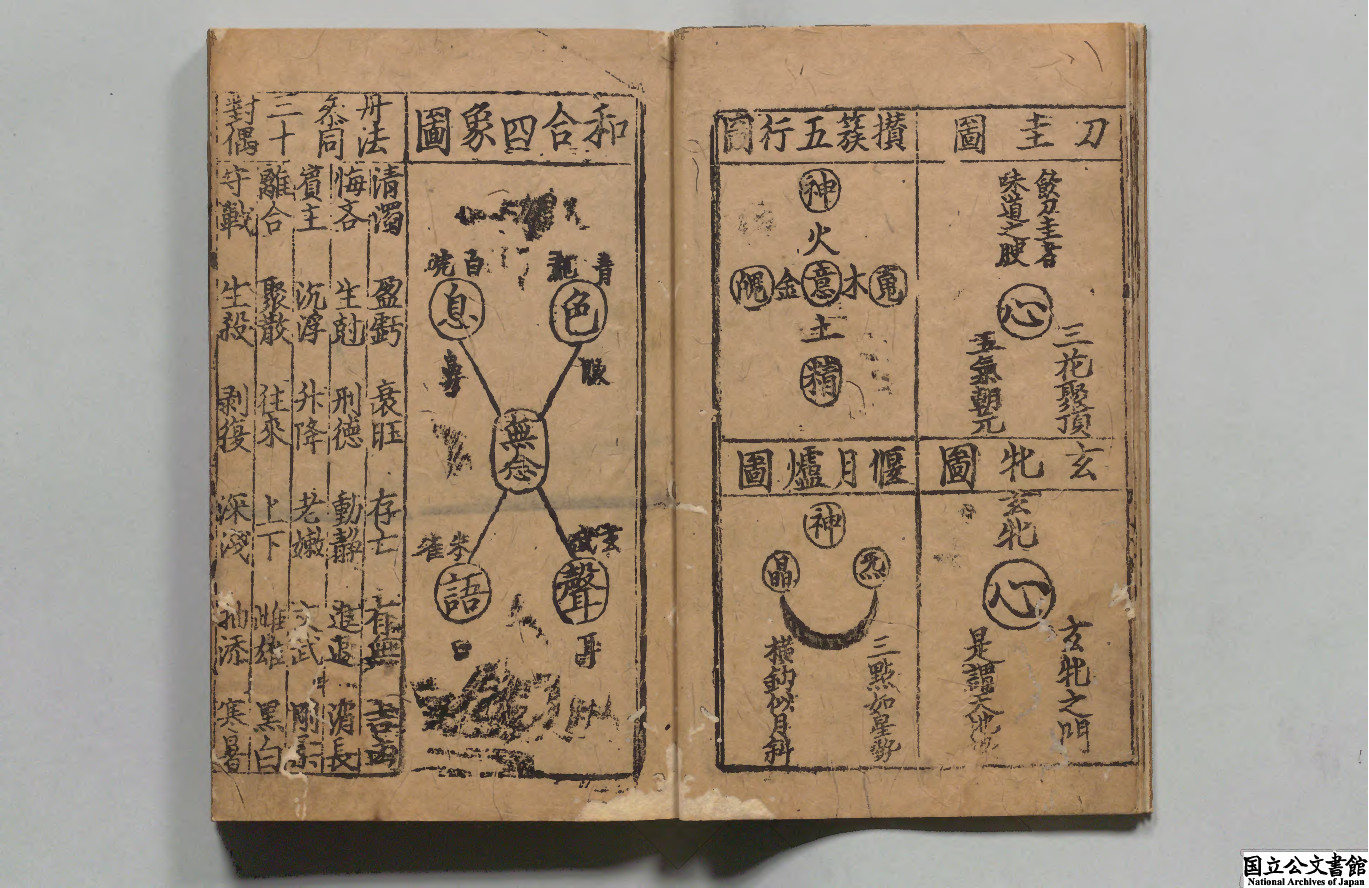 刀圭圖
飲刀圭者
味道之腴
心
三花聚頂
五氣朝元
攢簇五行圖
神
火
魂木意金魄
土
精
玄牝圖
玄牝
心
玄牝之門
是謂天地根
偃月爐圖
神
炁
晶
三點如星勢
橫鈎似月斜
和合四象圖
青龍
色
眼
白虎
息
鼻
無念
玄武
聲
耳
朱雀
語
口
丹法
叅同
三十
對偶
清濁 盈虧 衰旺 存亡 有無 吉凶
悔吝 生尅 刑德 動靜 進退 消長
賓主 沉浮 升降 老嫩 文武 剛柔
離合 聚散 往來 上下 雌雄 黑白
守戰 生殺 剥復 深淺 抽添 寒暑
国立公文書館
National Archives of Japan